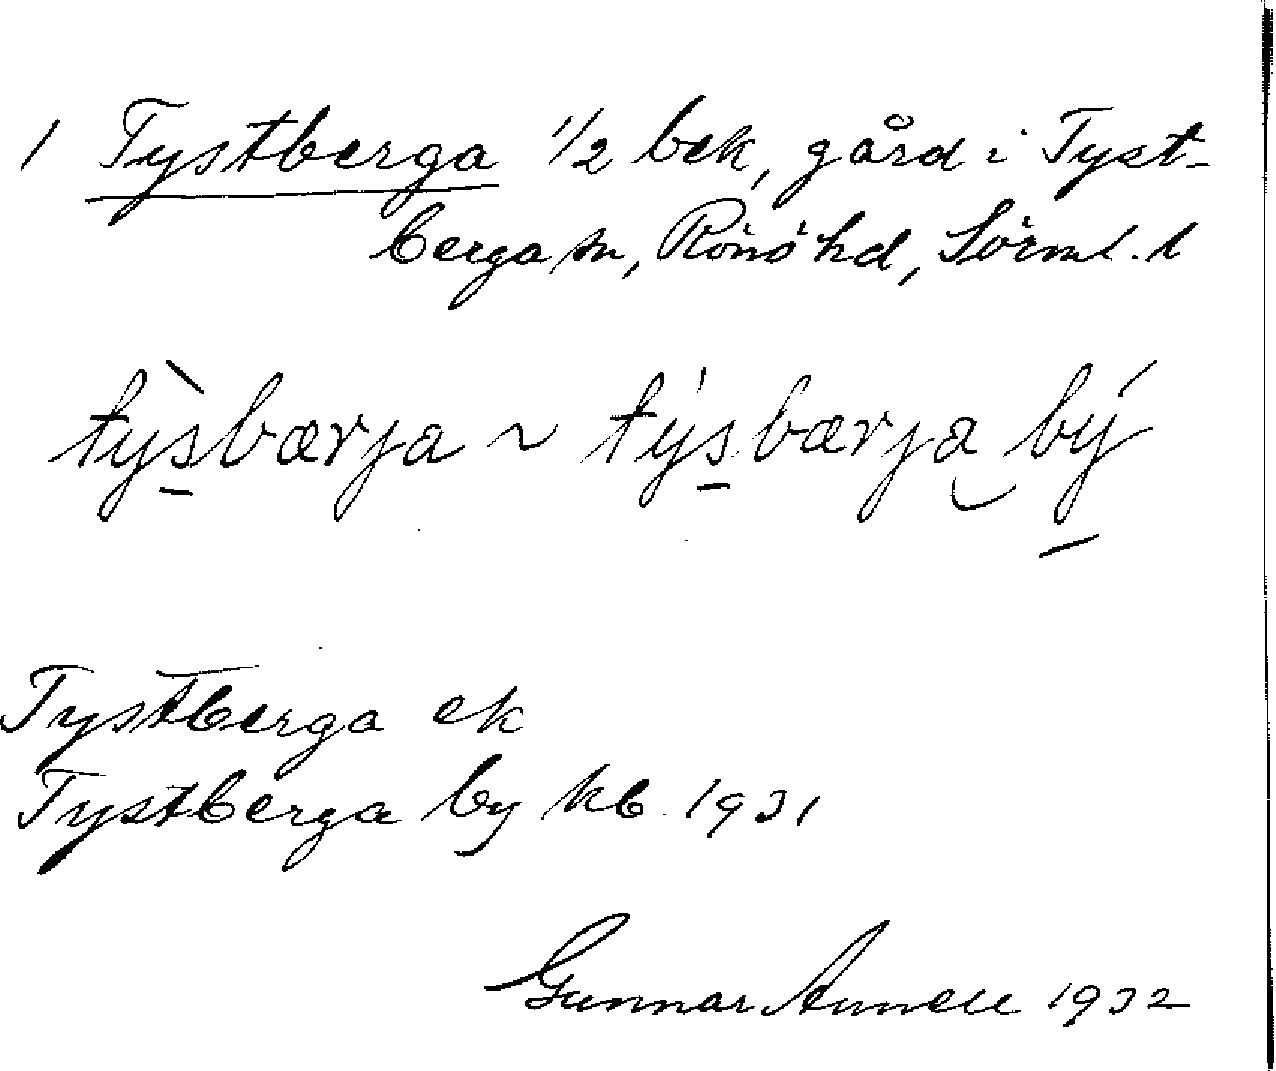 1 Tystberga 1/2 bek, gård i Tyst-
berga sn, Rönö hd, Sörml. l
tỳsbærja ~ týsbærja bý
Tystberga ek
Tystberga by kb 1931
Gunnar Annell 1932